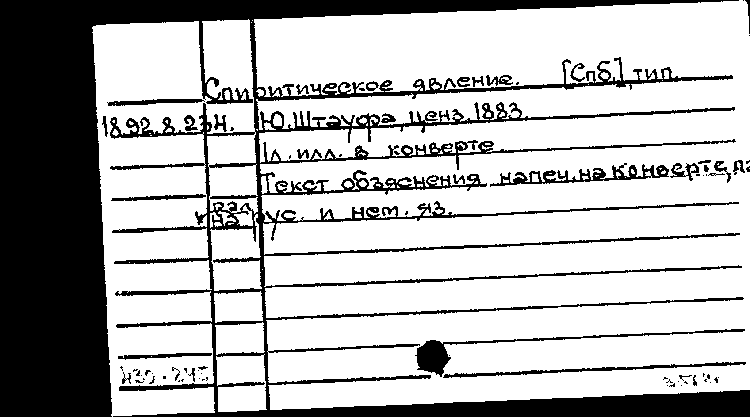 Спиритическое явление. [Спб.], тип.
18.92.8.234. Ю.Штауфа, ценз. 1883.
1л. илл. в конверте.
Текст объяснения напеч. на конверте,
рус. и нем. яз.